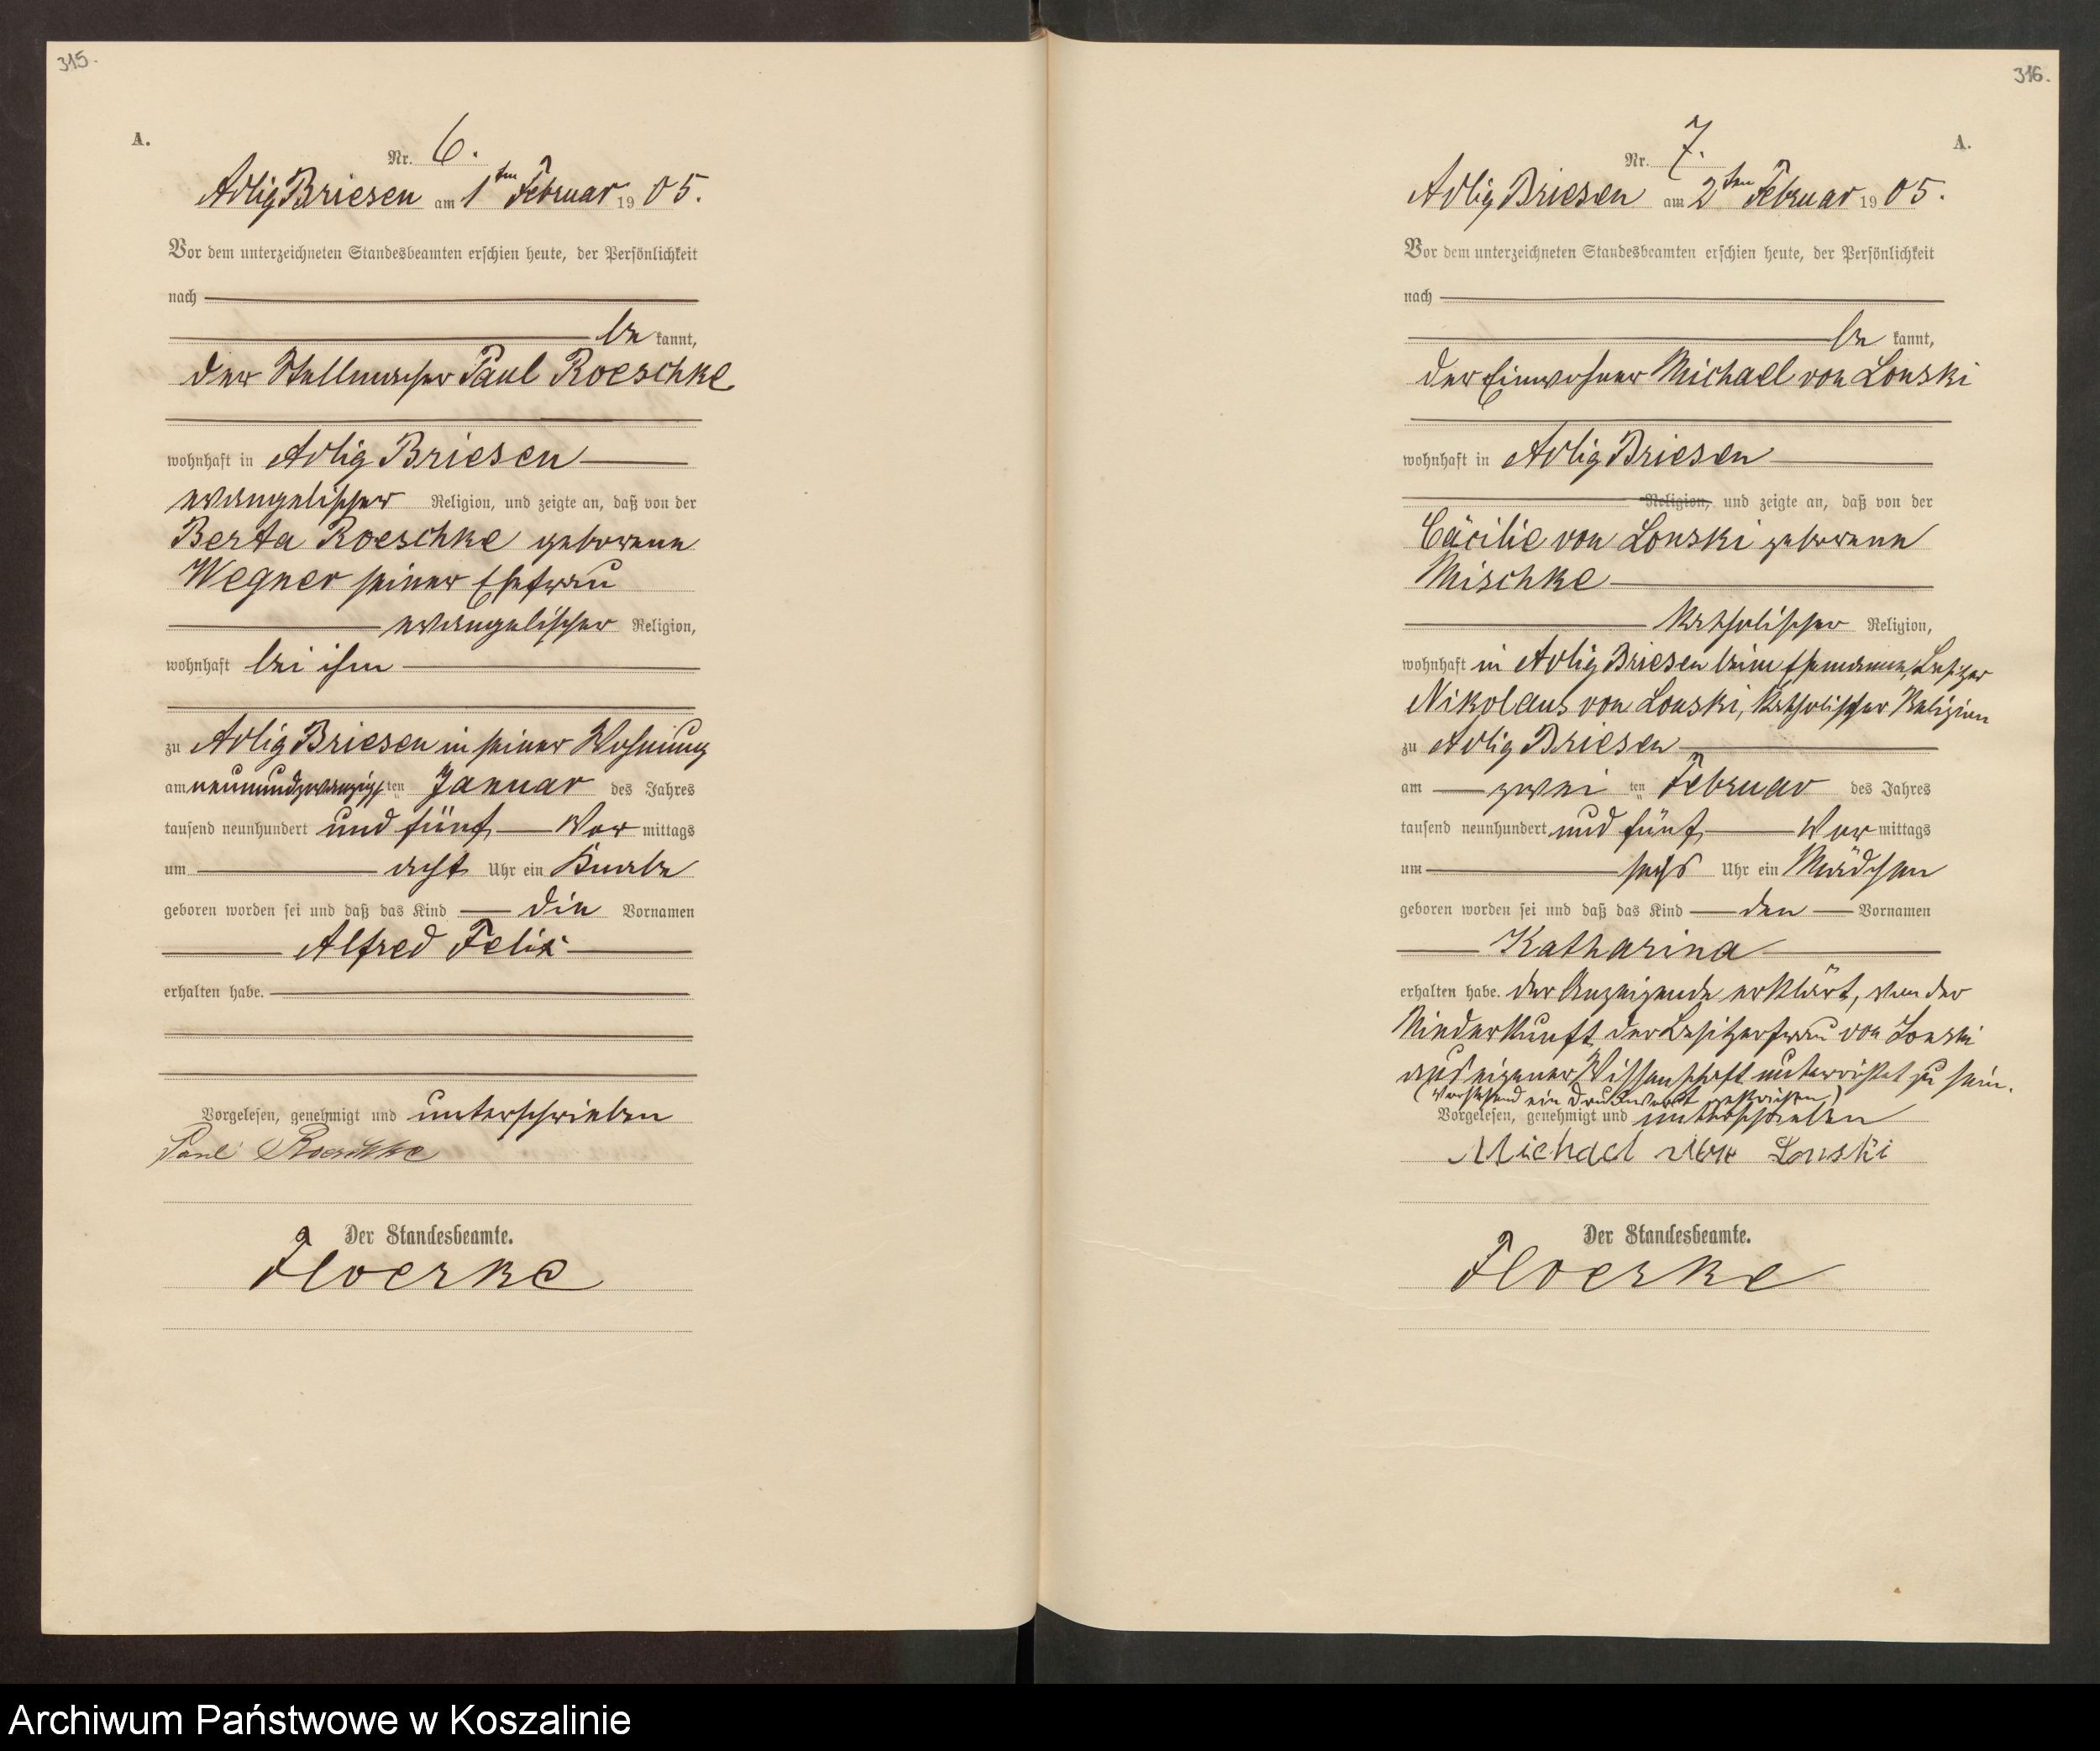 315.
A.
Nr. 6.
Adlig Briesen am 1ten Februar 1905.
Vor dem unterzeichneten Standesbeamten erschien heute, der Persönlichkeit
nach
be kannt,
der Stellmacher Paul Roeschke
wohnhaft in Adlig Briesen
evangelischer Religion, und zeigte an, daß von der
Berta Roeschke geborenen
Wegner seiner Ehefrau
evangelischer Religion,
wohnhaft bei ihm
zu Adlig Briesen in seiner Wohnung
am neunundzwanzigsten Januar des Jahres
tausend neunhundert und fünf Vor mittags
um acht Uhr ein Knabe
geboren worden sei und daß das Kind die Vornamen
Alfred Felix
erhalten habe.
Vorgelesen, genehmigt und unterschrieben
Paul Roeschke
Der Standesbeamte.
Floerke
316.
A.
Nr. 7.
Adlig Briesen am 2ten Februar 1905.
Vor dem unterzeichneten Standesbeamten erschien heute, der Persönlichkeit
nach
be kannt,
der Einwohner Michael von Lonski
wohnhaft in Adlig Briesen
Religion, und zeigte an, daß von der
Cäcilie von Lonski geborenen
Mischke
katholischer Religion,
wohnhaft in Adlig Briesen beim Ehemanne, Besitzer
Nikolaus von Lonski, katholischer Religion
zu Adlig Briesen
am zwei ten Februar des Jahres
tausend neunhundert und fünf Vor mittags
um sechs Uhr ein Mädchen
geboren worden sei und daß das Kind den Vornamen
Katharina
erhalten habe. Der Anzeigende erklärt, von der
Niederkunft der Besitzerfrau von Lonski
aus eigener Wissenschaft unterrichtet zu sein.
(Vorstehend ein Druckwort gestrichen)
Vorgelesen, genehmigt und unterschrieben
Michael von Lonski
Der Standesbeamte.
Floerke
Archiwum Państwowe w Koszalinie